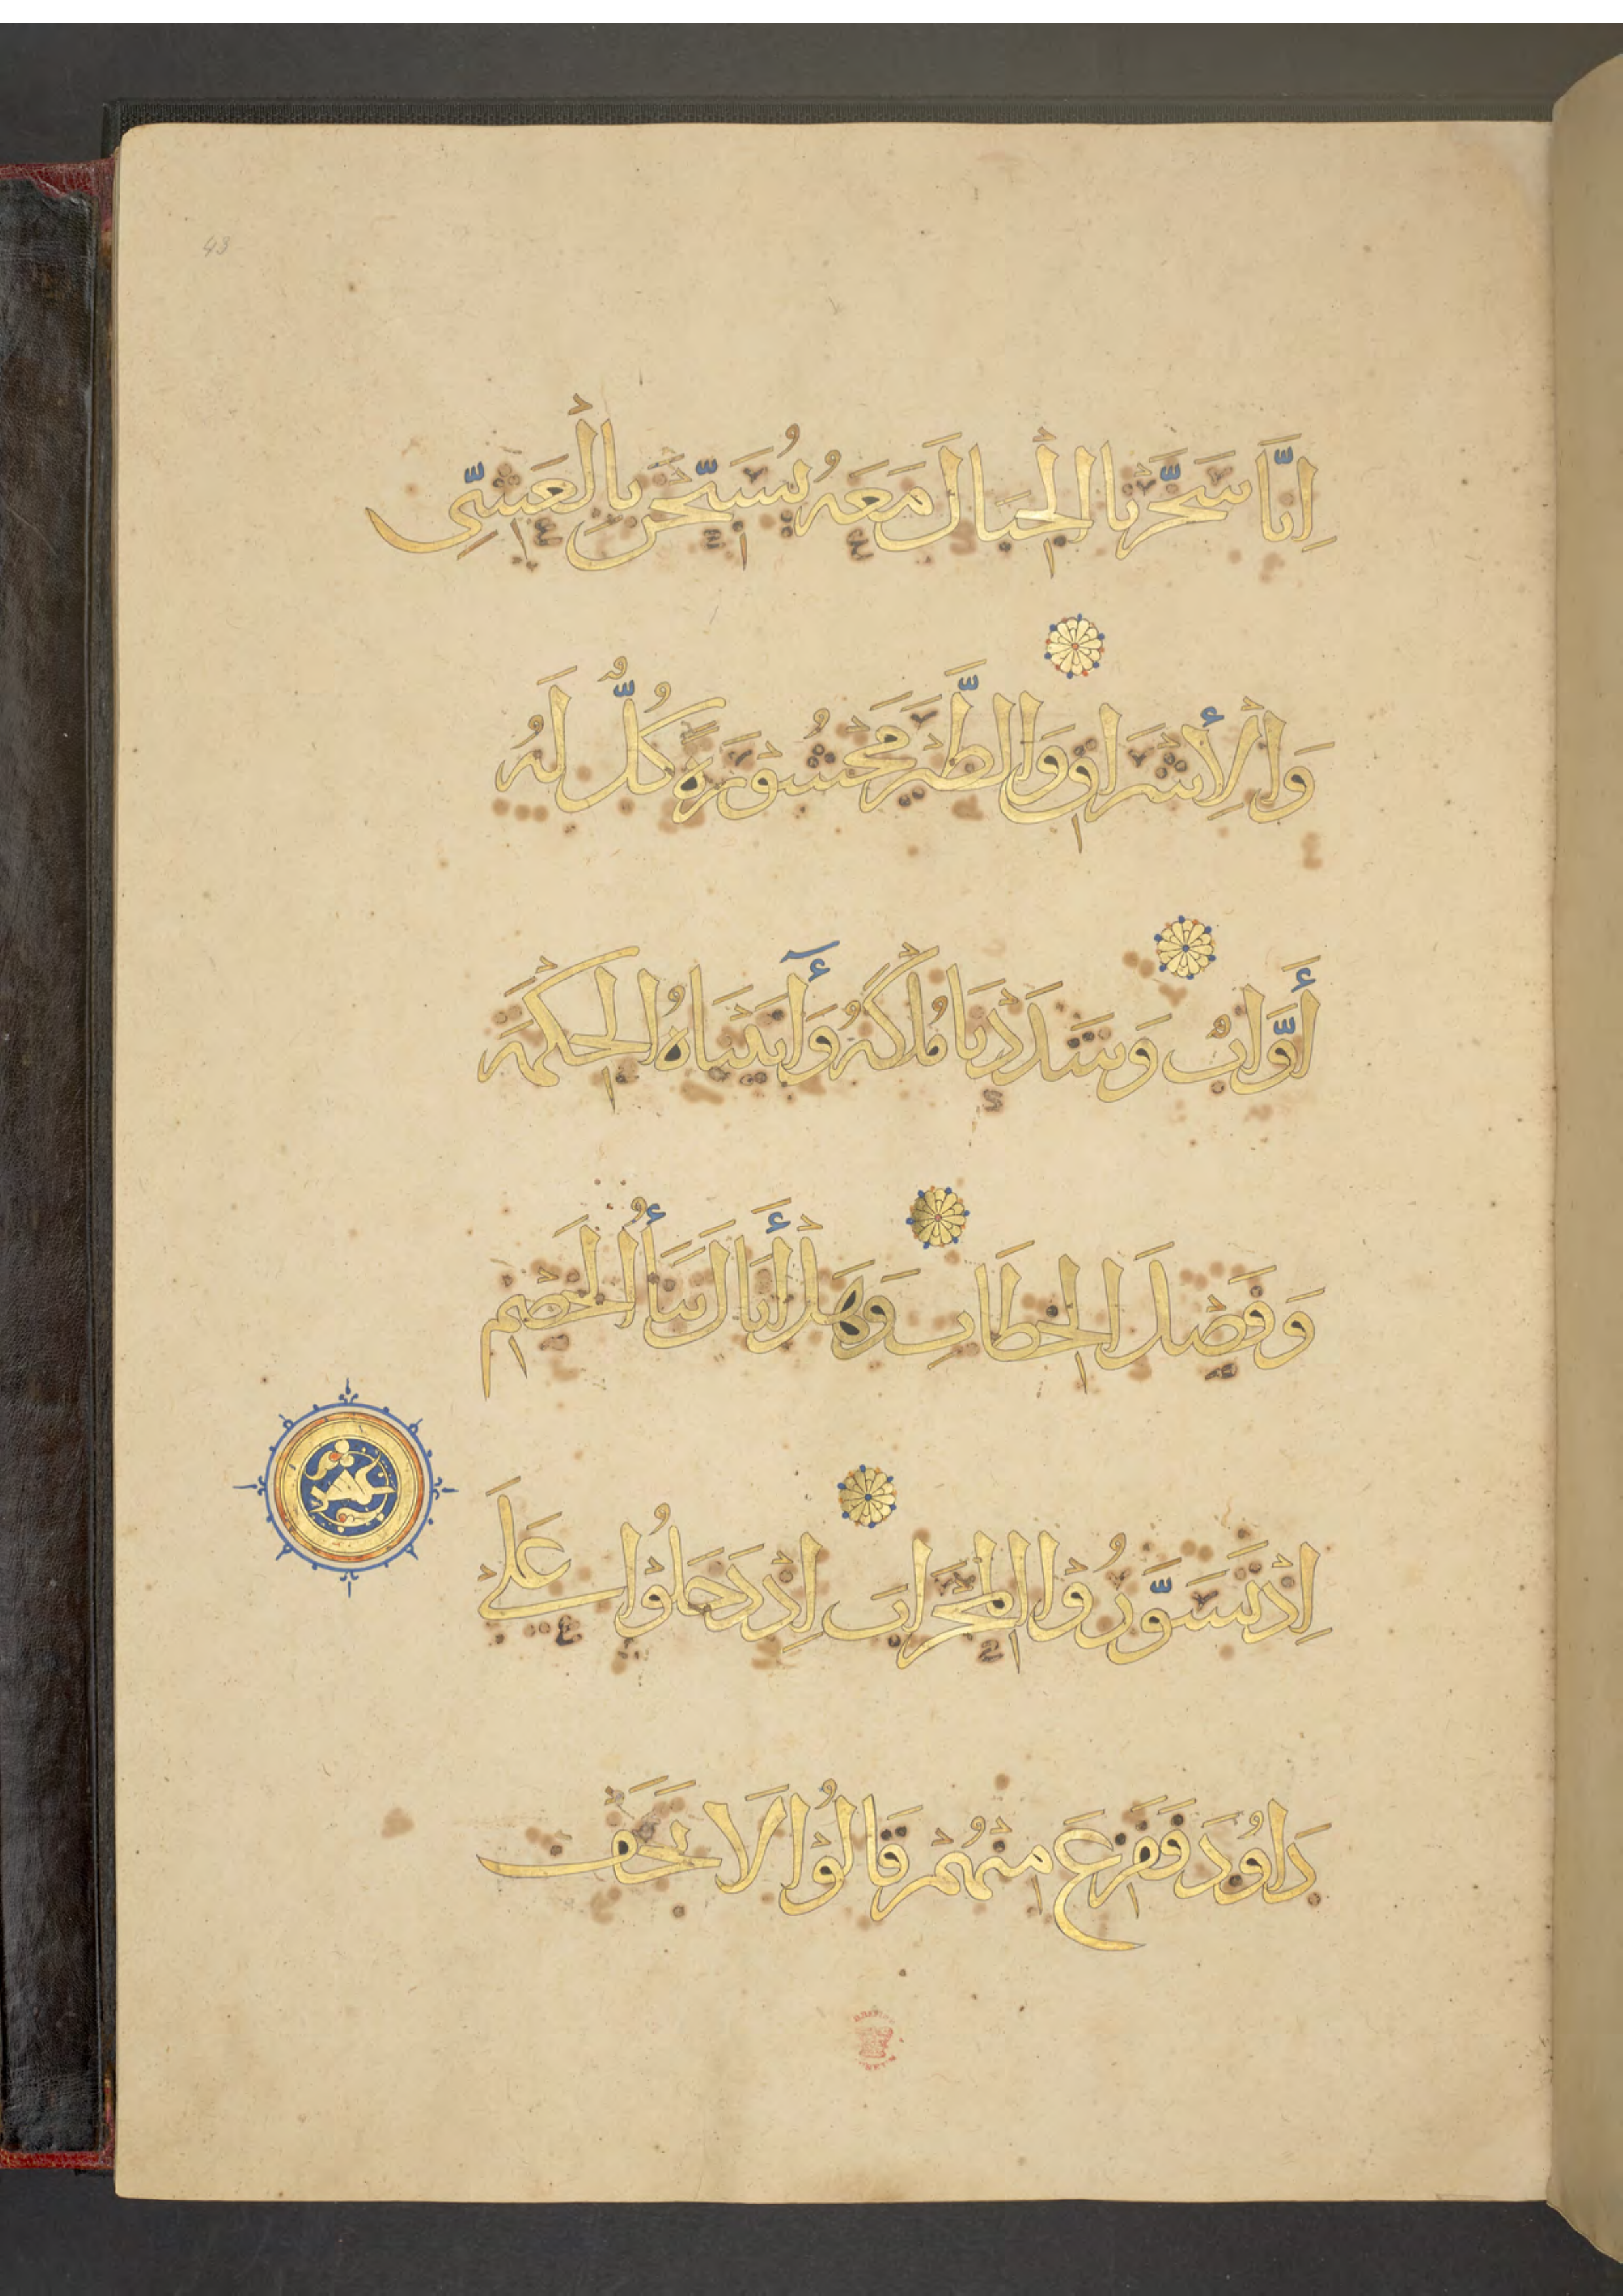 43
اِنَّا سَخَّرْنَا الْجِبَالَ مَعَهُ يُسَبِّحْنَ بِالْعَشِىِّ
وَالْأِشْرَاقِ وَالطَّيْرَ مَحْشُوْرَةً كُلٌّ لَهُ
أَوَّابٌ وَشَدَدْنَا مُلْكَهُ وَأٓتَيْنَاهُ الْحِكْمَةَ
وَفَصْلَ الْخِطَابِ وَهَلْ أَتَاكَ نَبَأُ الْخَصْمِ
اِذْ تَسَوَّرُوْا الْمِحْرَابَ اِذْ دَخَلُوْا عَلَى
دَاوُدَ فَفَزِعَ مِنْهُمْ قَالُوْا لَا تَخَفْ